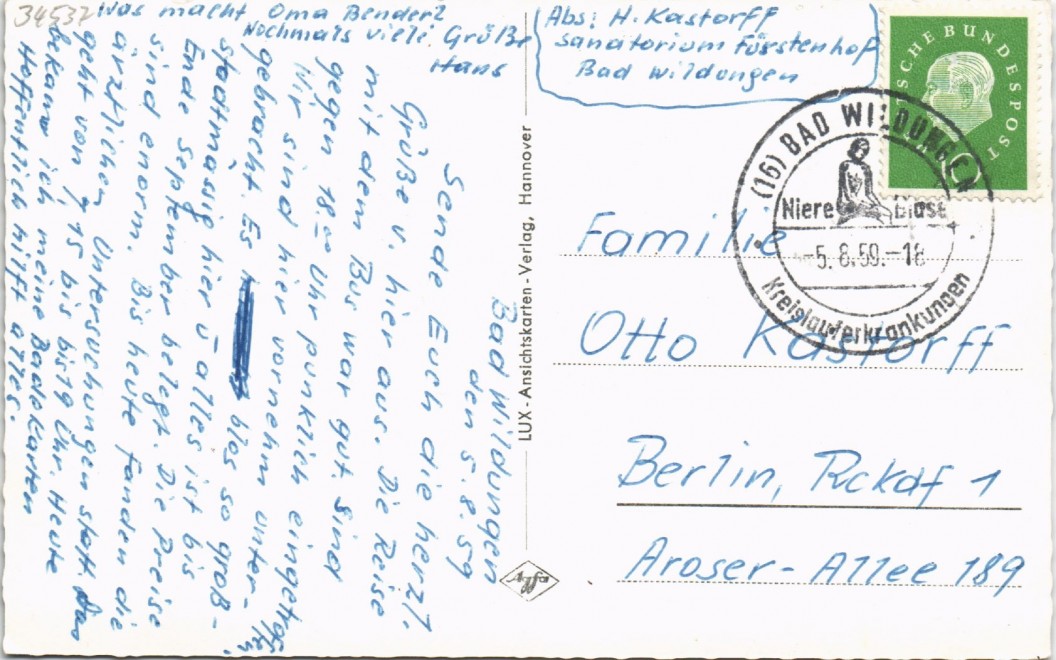 34537
Bad Wildungen
den 5.8.59
Sende Euch die herzl.
Grüße v. hier aus. Die Reise
mit dem Bus war gut. Sind
gegen 18.00 Uhr pünklich eingetroffen.
Wir sind hier vornehm unter-
gebracht. Es blos so groß-
stadtmässig hier u alles ist bis
Ende September belegt. Die Preise
sind enorm. Bis heute fanden die
ärztlichen Untersuchungen statt. Das
geht von 7,15 bis bis 19 Uhr. Heute
bekam ich meine Badekarten
Hoffentlich hilft alles.
Was macht Oma Bender?
Nochmals viele Grüße
Hans
LUX - Ansichtskarten - Verlag, Hannover
Abs: H. Kastorff
Sanatorium Fürstenhof
Bad Wildungen
DEUTSCHE BUNDESPOST
(16) BAD WILDUNGEN
Niere Blase
-5.8.59.-18
Kreislauferkrankungen
Familie
Otto Kastorff
Berlin, Rckdf 1
Aroser-Allee 189